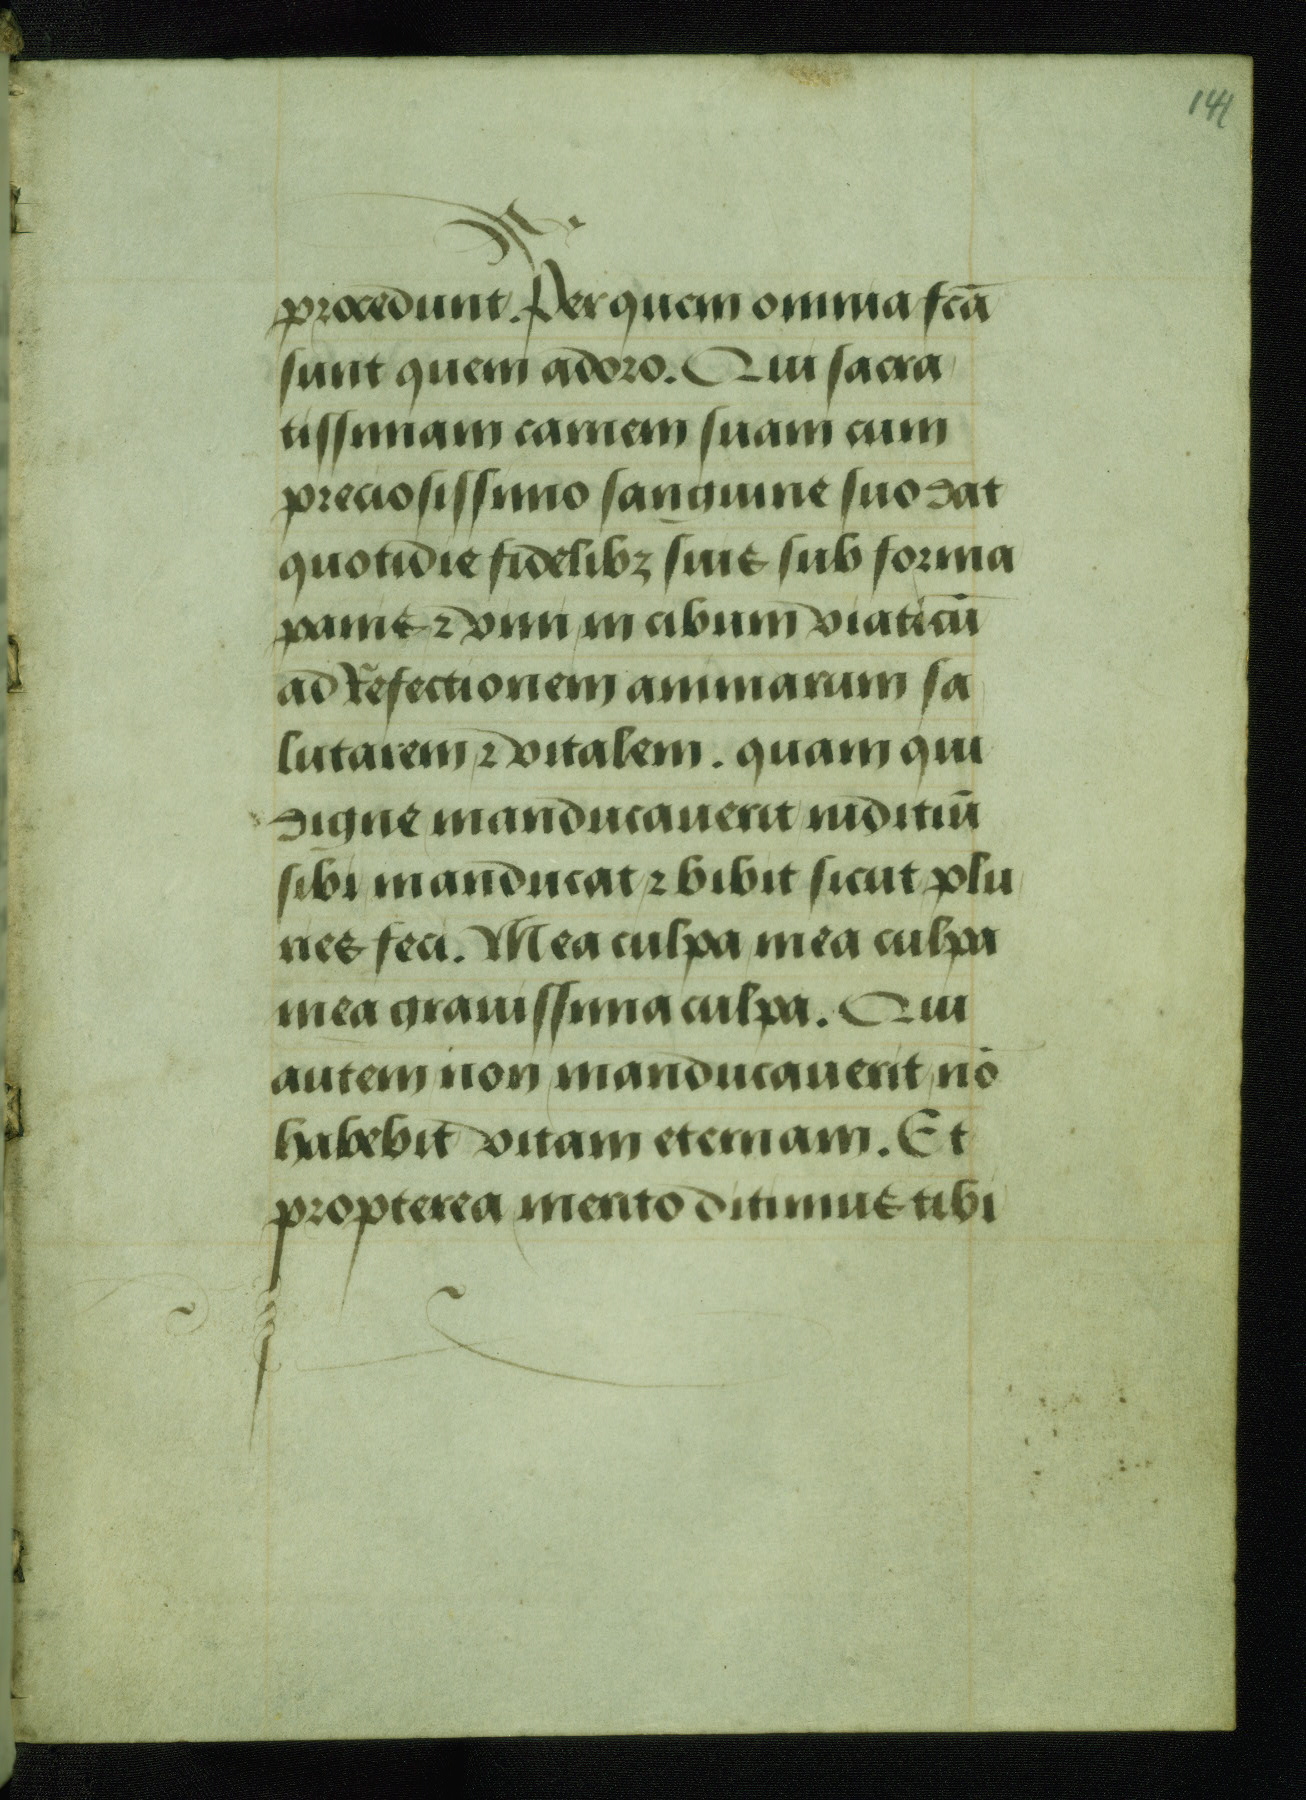 141
procedunt. Per quem omnia fcā
sunt quem adoro. Qui sacra
tissimam carnem suam cum
preciosissimo sanguine suo dat
quotidie fidelibꝫ suis sub forma
panis ⁊ vini in cibum viaticū
ad Refectionem animarum sa
lutarem ⁊ vitalem. quam qui
digne manducauerit iuditiū
sibi manducat ⁊ bibit sicut plu
ries feci. Mea culpa mea culpa
mea grauissima culpa. Qui
autem non manducauerit nō
habebit vitam eternam. Et
propterea merito ditimus tibi